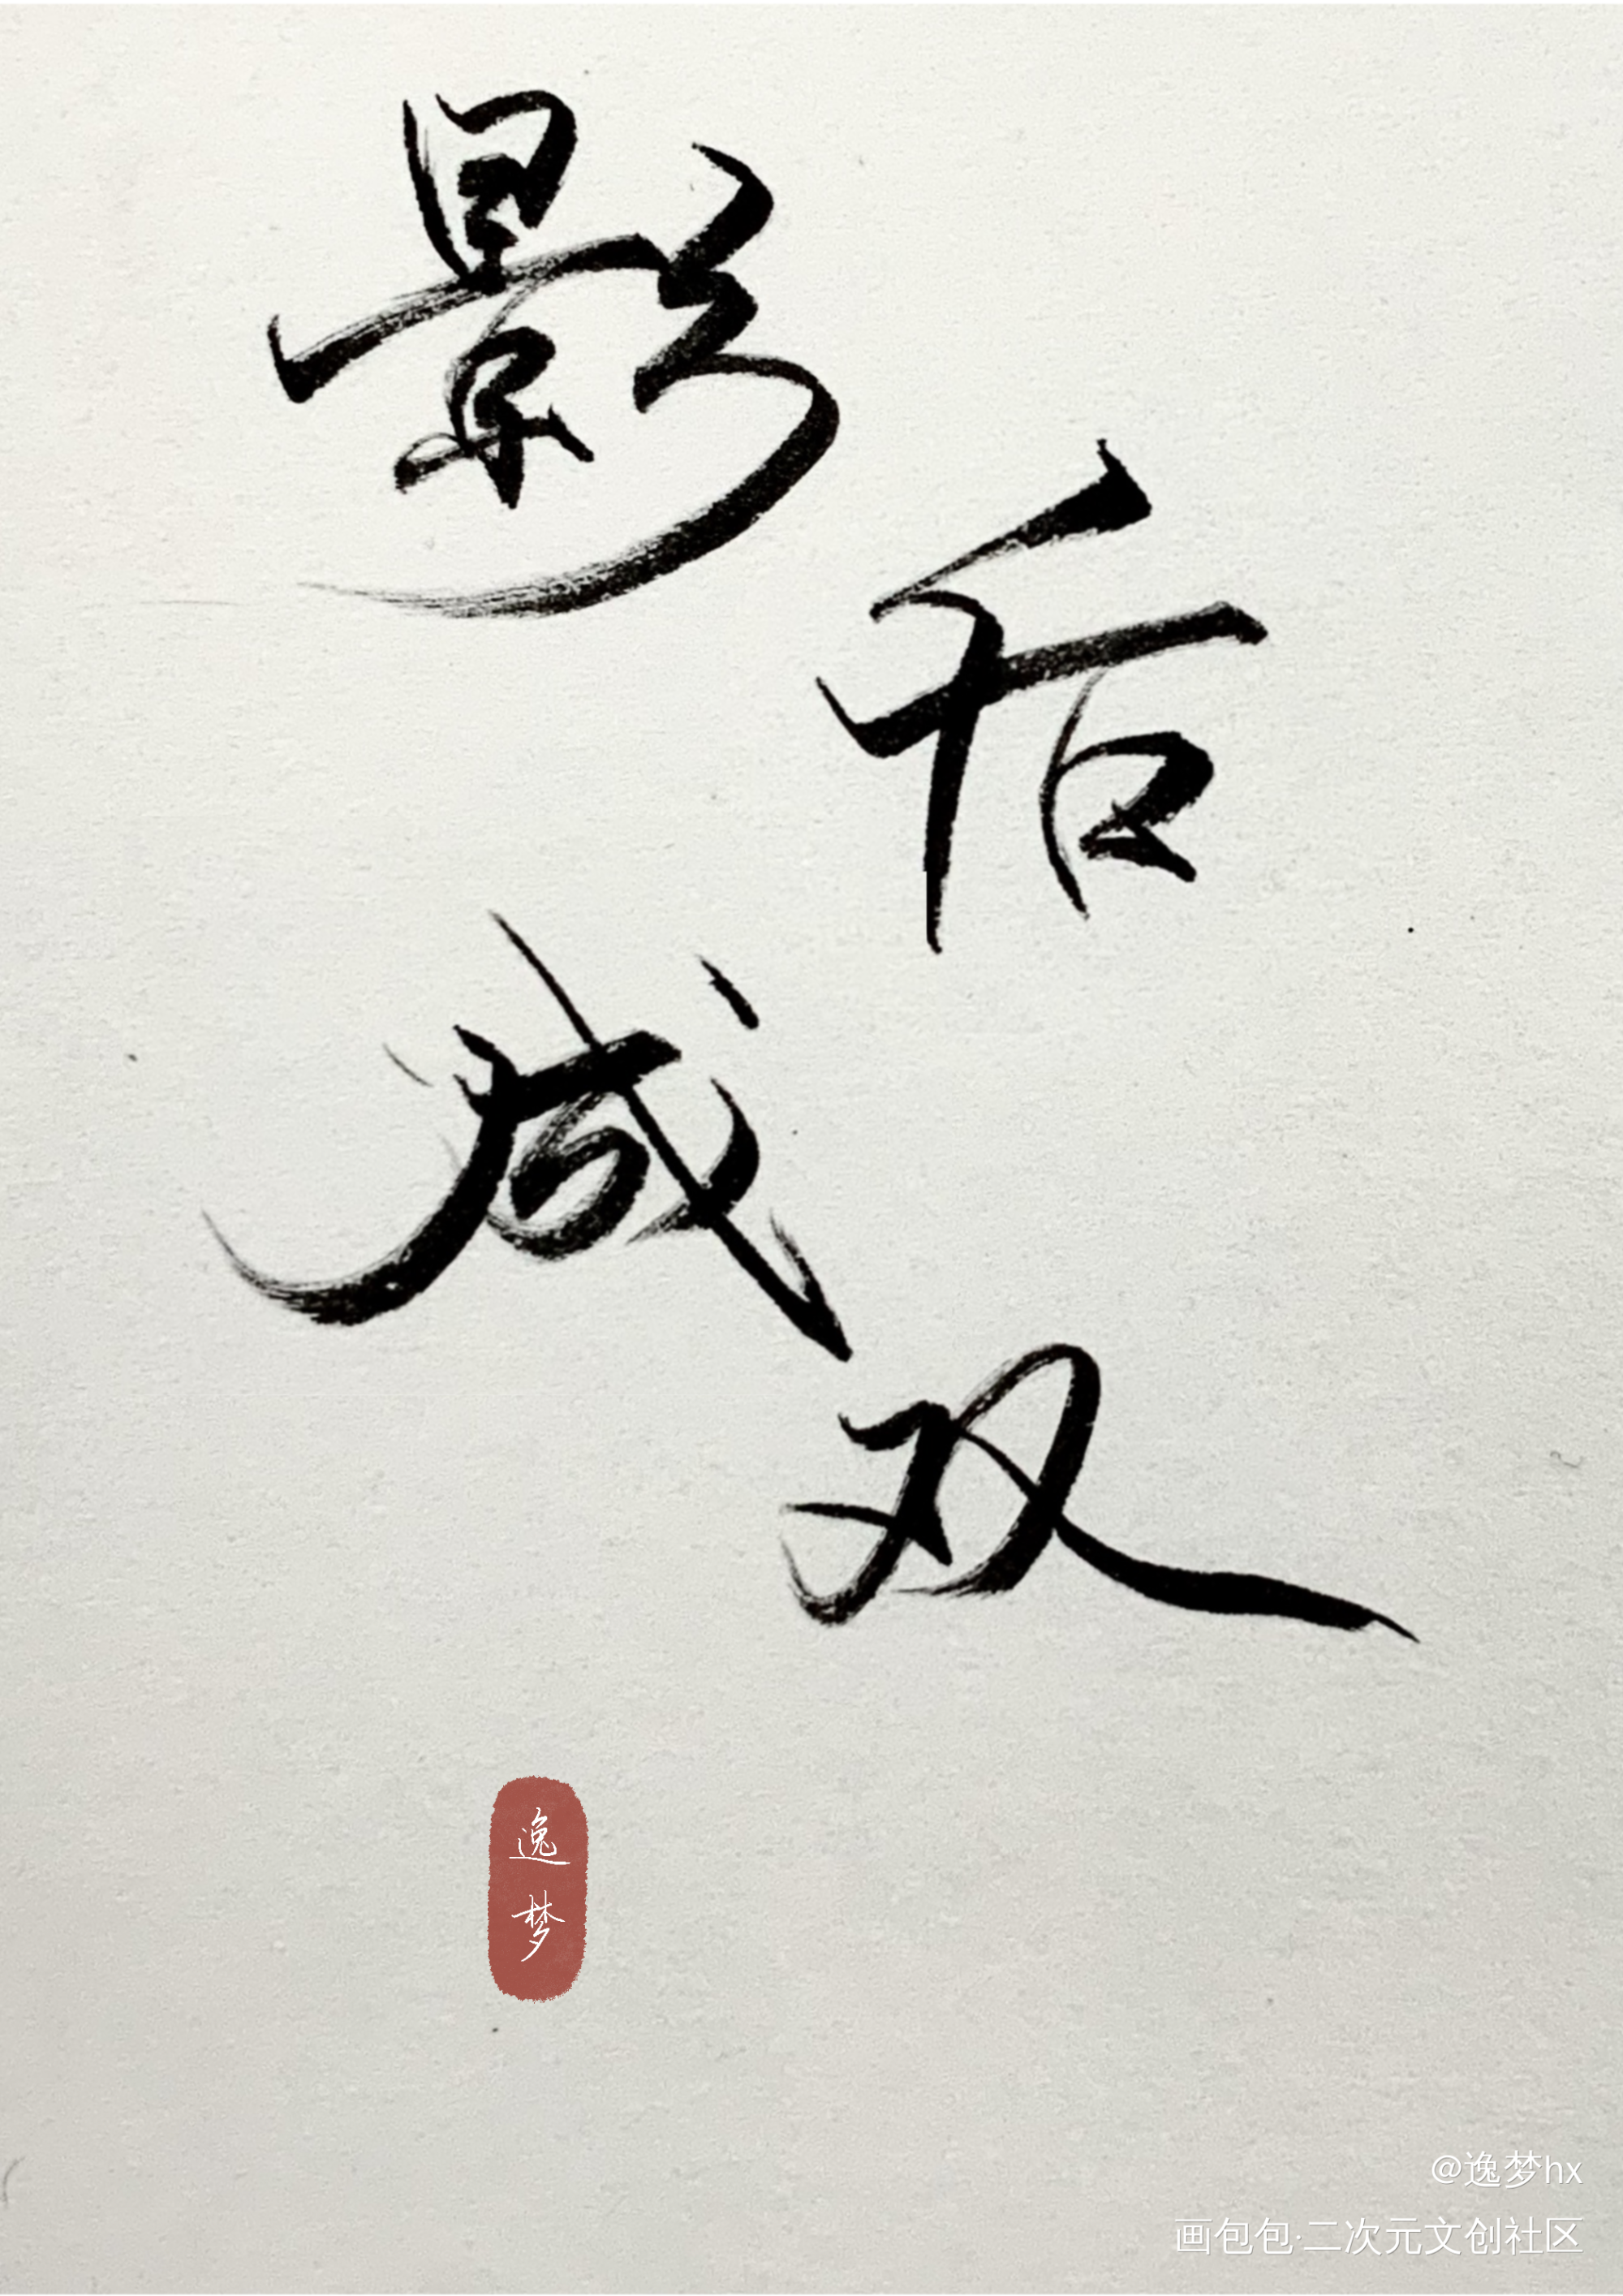 影
后
成
双
逸
梦
@逸梦hx
画包包·二次元文创社区